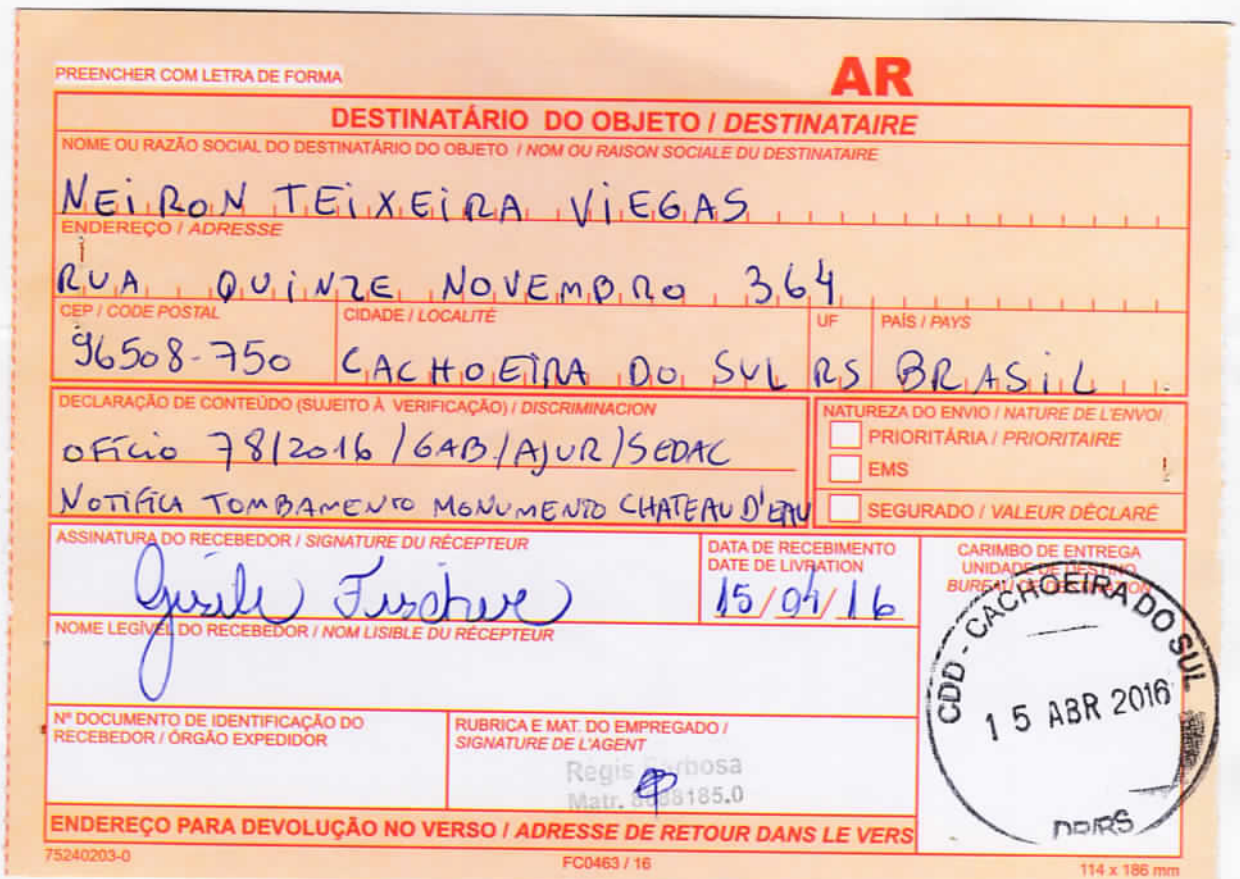 PREENCHER COM LETRA DE FORMA
AR
DESTINATÁRIO DO OBJETO / DESTINATAIRE
NOME OU RAZÃO SOCIAL DO DESTINATÁRIO DO OBJETO / NOM OU RAISON SOCIALE DU DESTINATAIRE
NEIRON TEIXEIRA VIEGAS
ENDEREÇO / ADRESSE
RUA QUINZE NOVEMBRO 364
CEP / CODE POSTAL
96508-750
CIDADE / LOCALITÉ
CACHOEIRA DO SUL
UF
RS
PAÍS / PAYS
BRASIL
DECLARAÇÃO DE CONTEÚDO (SUJEITO À VERIFICAÇÃO) / DISCRIMINACION
OFÍCIO 78/2016/GAB/AJUR/SEDAC
NOTIFICA TOMBAMENTO MONUMENTO CHATEAU D'EAU
NATUREZA DO ENVIO / NATURE DE L'ENVOI
PRIORITÁRIA / PRIORITAIRE
EMS
SEGURADO / VALEUR DÉCLARÉ
ASSINATURA DO RECEBEDOR / SIGNATURE DU RÉCEPTEUR
Gisele Fischer
DATA DE RECEBIMENTO
DATE DE LIVRATION
15/04/16
CARIMBO DE ENTREGA
UNIDADE DE DESTINO
BUREAU DE
CDD - CACHOEIRA DO SUL
15 ABR 2016
DR/RS
NOME LEGÍVEL DO RECEBEDOR / NOM LISIBLE DU RÉCEPTEUR
Nº DOCUMENTO DE IDENTIFICAÇÃO DO
RECEBEDOR / ÓRGÃO EXPEDIDOR
RUBRICA E MAT. DO EMPREGADO /
SIGNATURE DE L'AGENT
Regis Barbosa
Matr. 185.0
ENDEREÇO PARA DEVOLUÇÃO NO VERSO / ADRESSE DE RETOUR DANS LE VERS
75240203-0
FC0463 / 16
114 x 186 mm